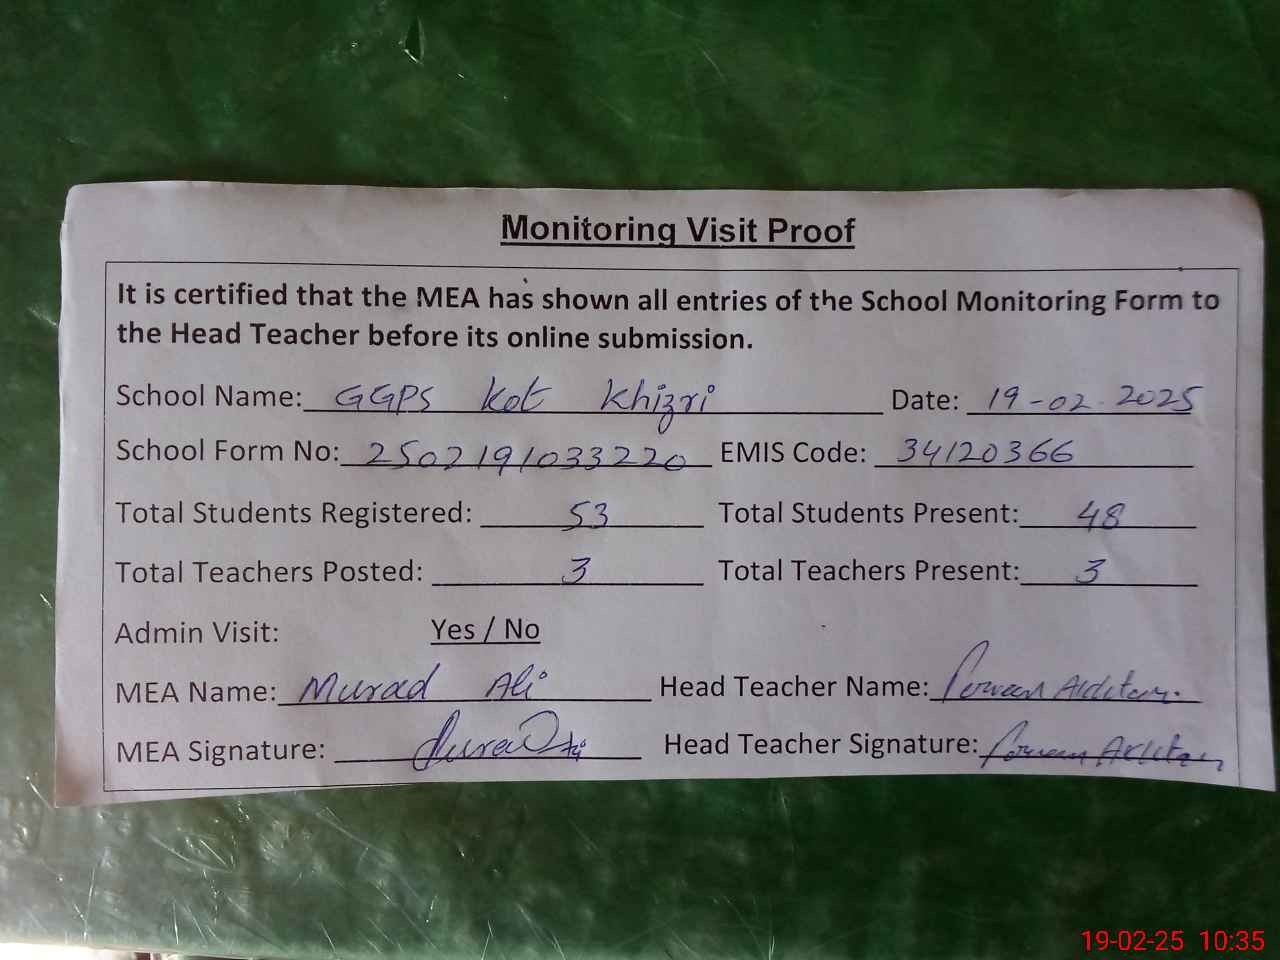 Monitoring Visit Proof
It is certified that the MEA has shown all entries of the School Monitoring Form to
the Head Teacher before its online submission.
School Name: GGPS Kot Khizri Date: 19-02-2025
School Form No: 2502191033220 EMIS Code: 34120366
Total Students Registered: 53 Total Students Present: 48
Total Teachers Posted: 3 Total Teachers Present: 3
Admin Visit: Yes / No
MEA Name: Murad Ali Head Teacher Name: Perveen Akhtar
MEA Signature: Head Teacher Signature: Perveen Akhtar
19-02-25 10:35